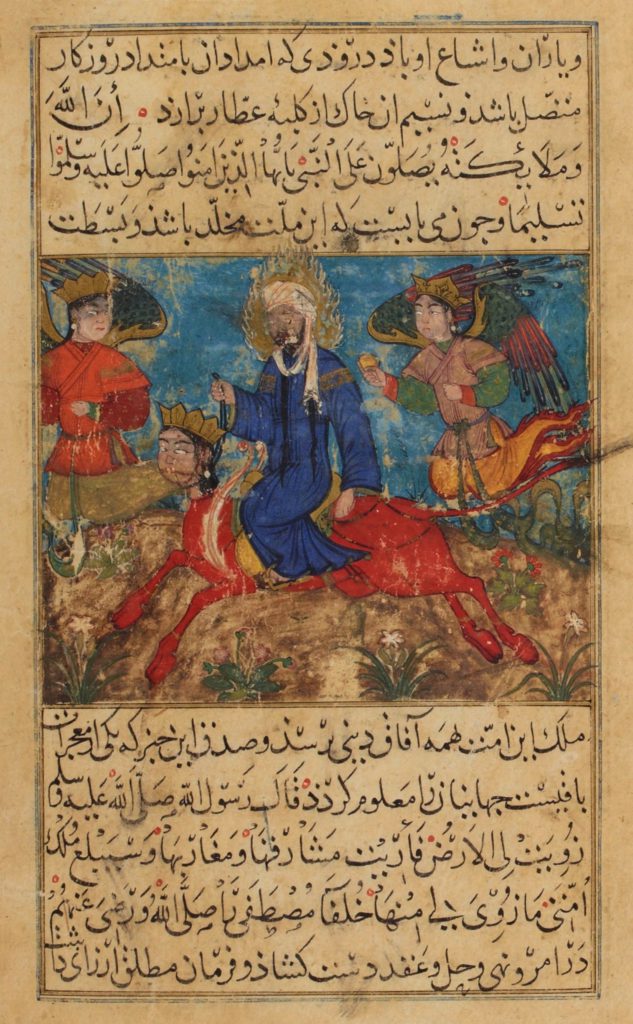 و یاران و اشیاع او باذ درودی که امداد آن بامتداد روزکار
متصل باشذ و نسیم آن خاک از کلبهٔ عطار برآرذ أن الله
وملائكته يصلون على النبي يا يها الذين امنوا صلوا عليه وسلموا
تسليما و جون می بایست که این ملت مخلد باشذ و بسطت
ملک این امت همه آفاق دنیی برسذ و صدق این خبر که یکی از معجزات
باقیست جهانیان را معلوم کردذ قال رسول الله صلى الله عليه وسلم
زويت لى الارض فأريت مشارقها ومغاربها وسيبلغ ملك
أمتى ما زوى لى منها خلفا مصطفى را صلى الله ورضى عنهم
در امر و نهی و حل و عقد دست کشاذ و فرمان مطلق ارزانی داشت